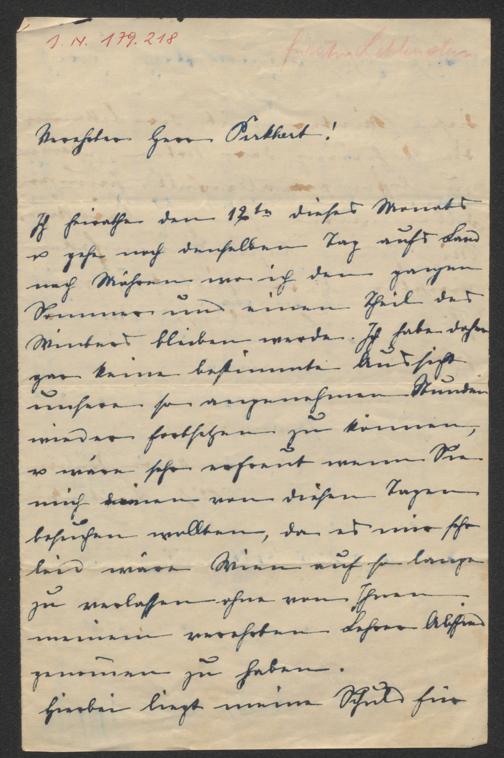 I. N. 179.218
Verehrter Herr Pirkhert!
Ich heirathe den 12ten dieses Monats
u gehe noch denselben Tag aufs Land
nach Mähren wo ich den ganzen
Sommer und einen Theil des
Winters bleiben werde. Ich habe daher
gar keine bestimmte Aussicht
unsere so angenehmen Stunden
wieder fortsetzen zu können,
u wäre sehr erfreut wenn Sie
mich einen von diesen Tagen
besuchen wollten, da es mir sehr
leid wäre Wien auf so lange
zu verlassen ohne von Ihnen
meinem verehrten Lehrer Abschied
genommen zu haben.
Hierbei liegt meine Schuld für